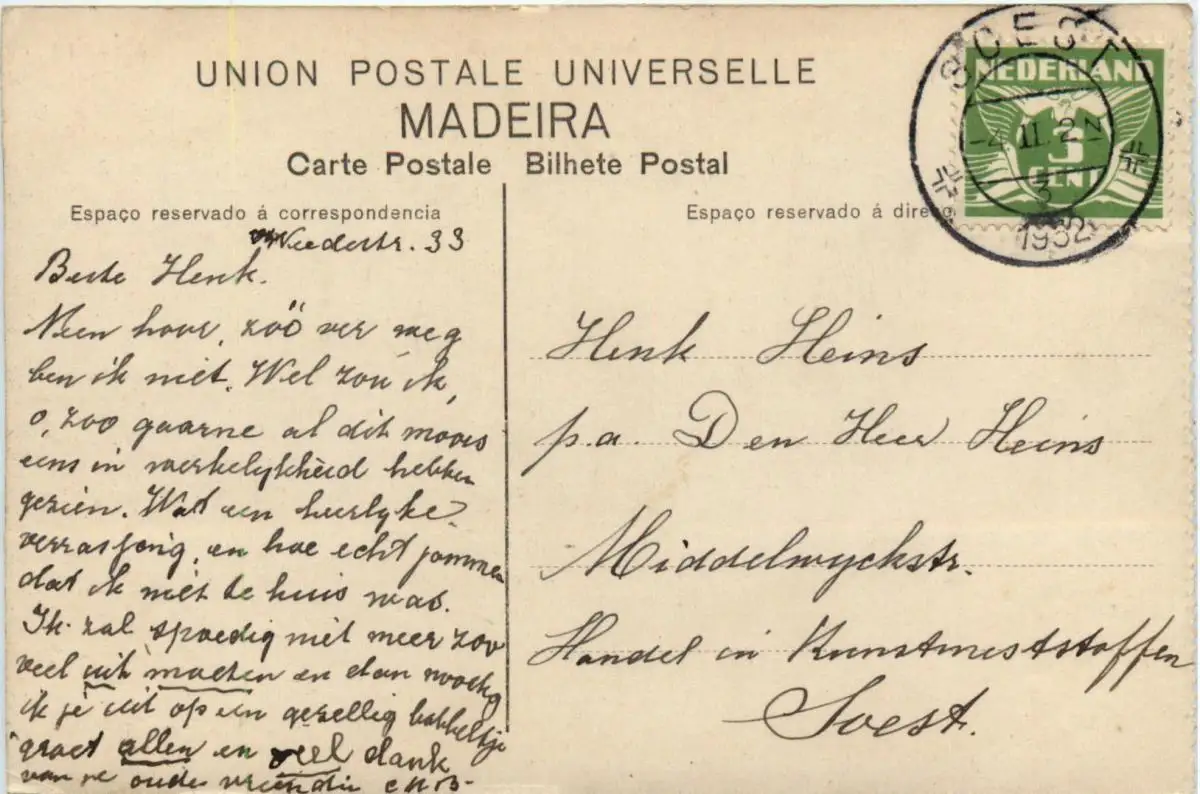 UNION POSTALE UNIVERSELLE
MADEIRA
Carte Postale Bilhete Postal
Espaço reservado á correspondencia
Weedestr. 33
Beste Henk.
Neen hoor, zóó ver weg
ben ik niet. Wel zou ik,
o, zoo gaarne al dit moois
eens in werkelykheid hebben
gezien. Wat een heerlyke
verrassing, en hoe echt jammer
dat ik niet te huis was.
Ik zal spoedig niet meer zoo
veel uit moeten en dan noodig
ik je uit op een gezellig babbeltje
groet allen en veel dank
van je oude vriendin
Espaço reservado á
SOEST
NEDERLAND
3
CENT
1932
Henk Heins
p.a. Den Heer Heins
Middelwyckstr.
Handel in Kunstmeststoffen
Soest.